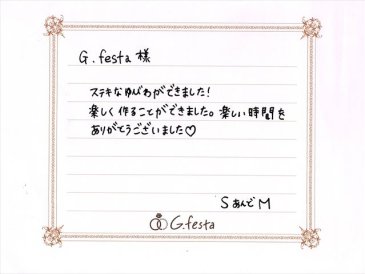 G.festa 様
ステキなゆびわができました!
楽しく作ることができました。楽しい時間を
ありがとうございました♡
SあんでM
G.festa